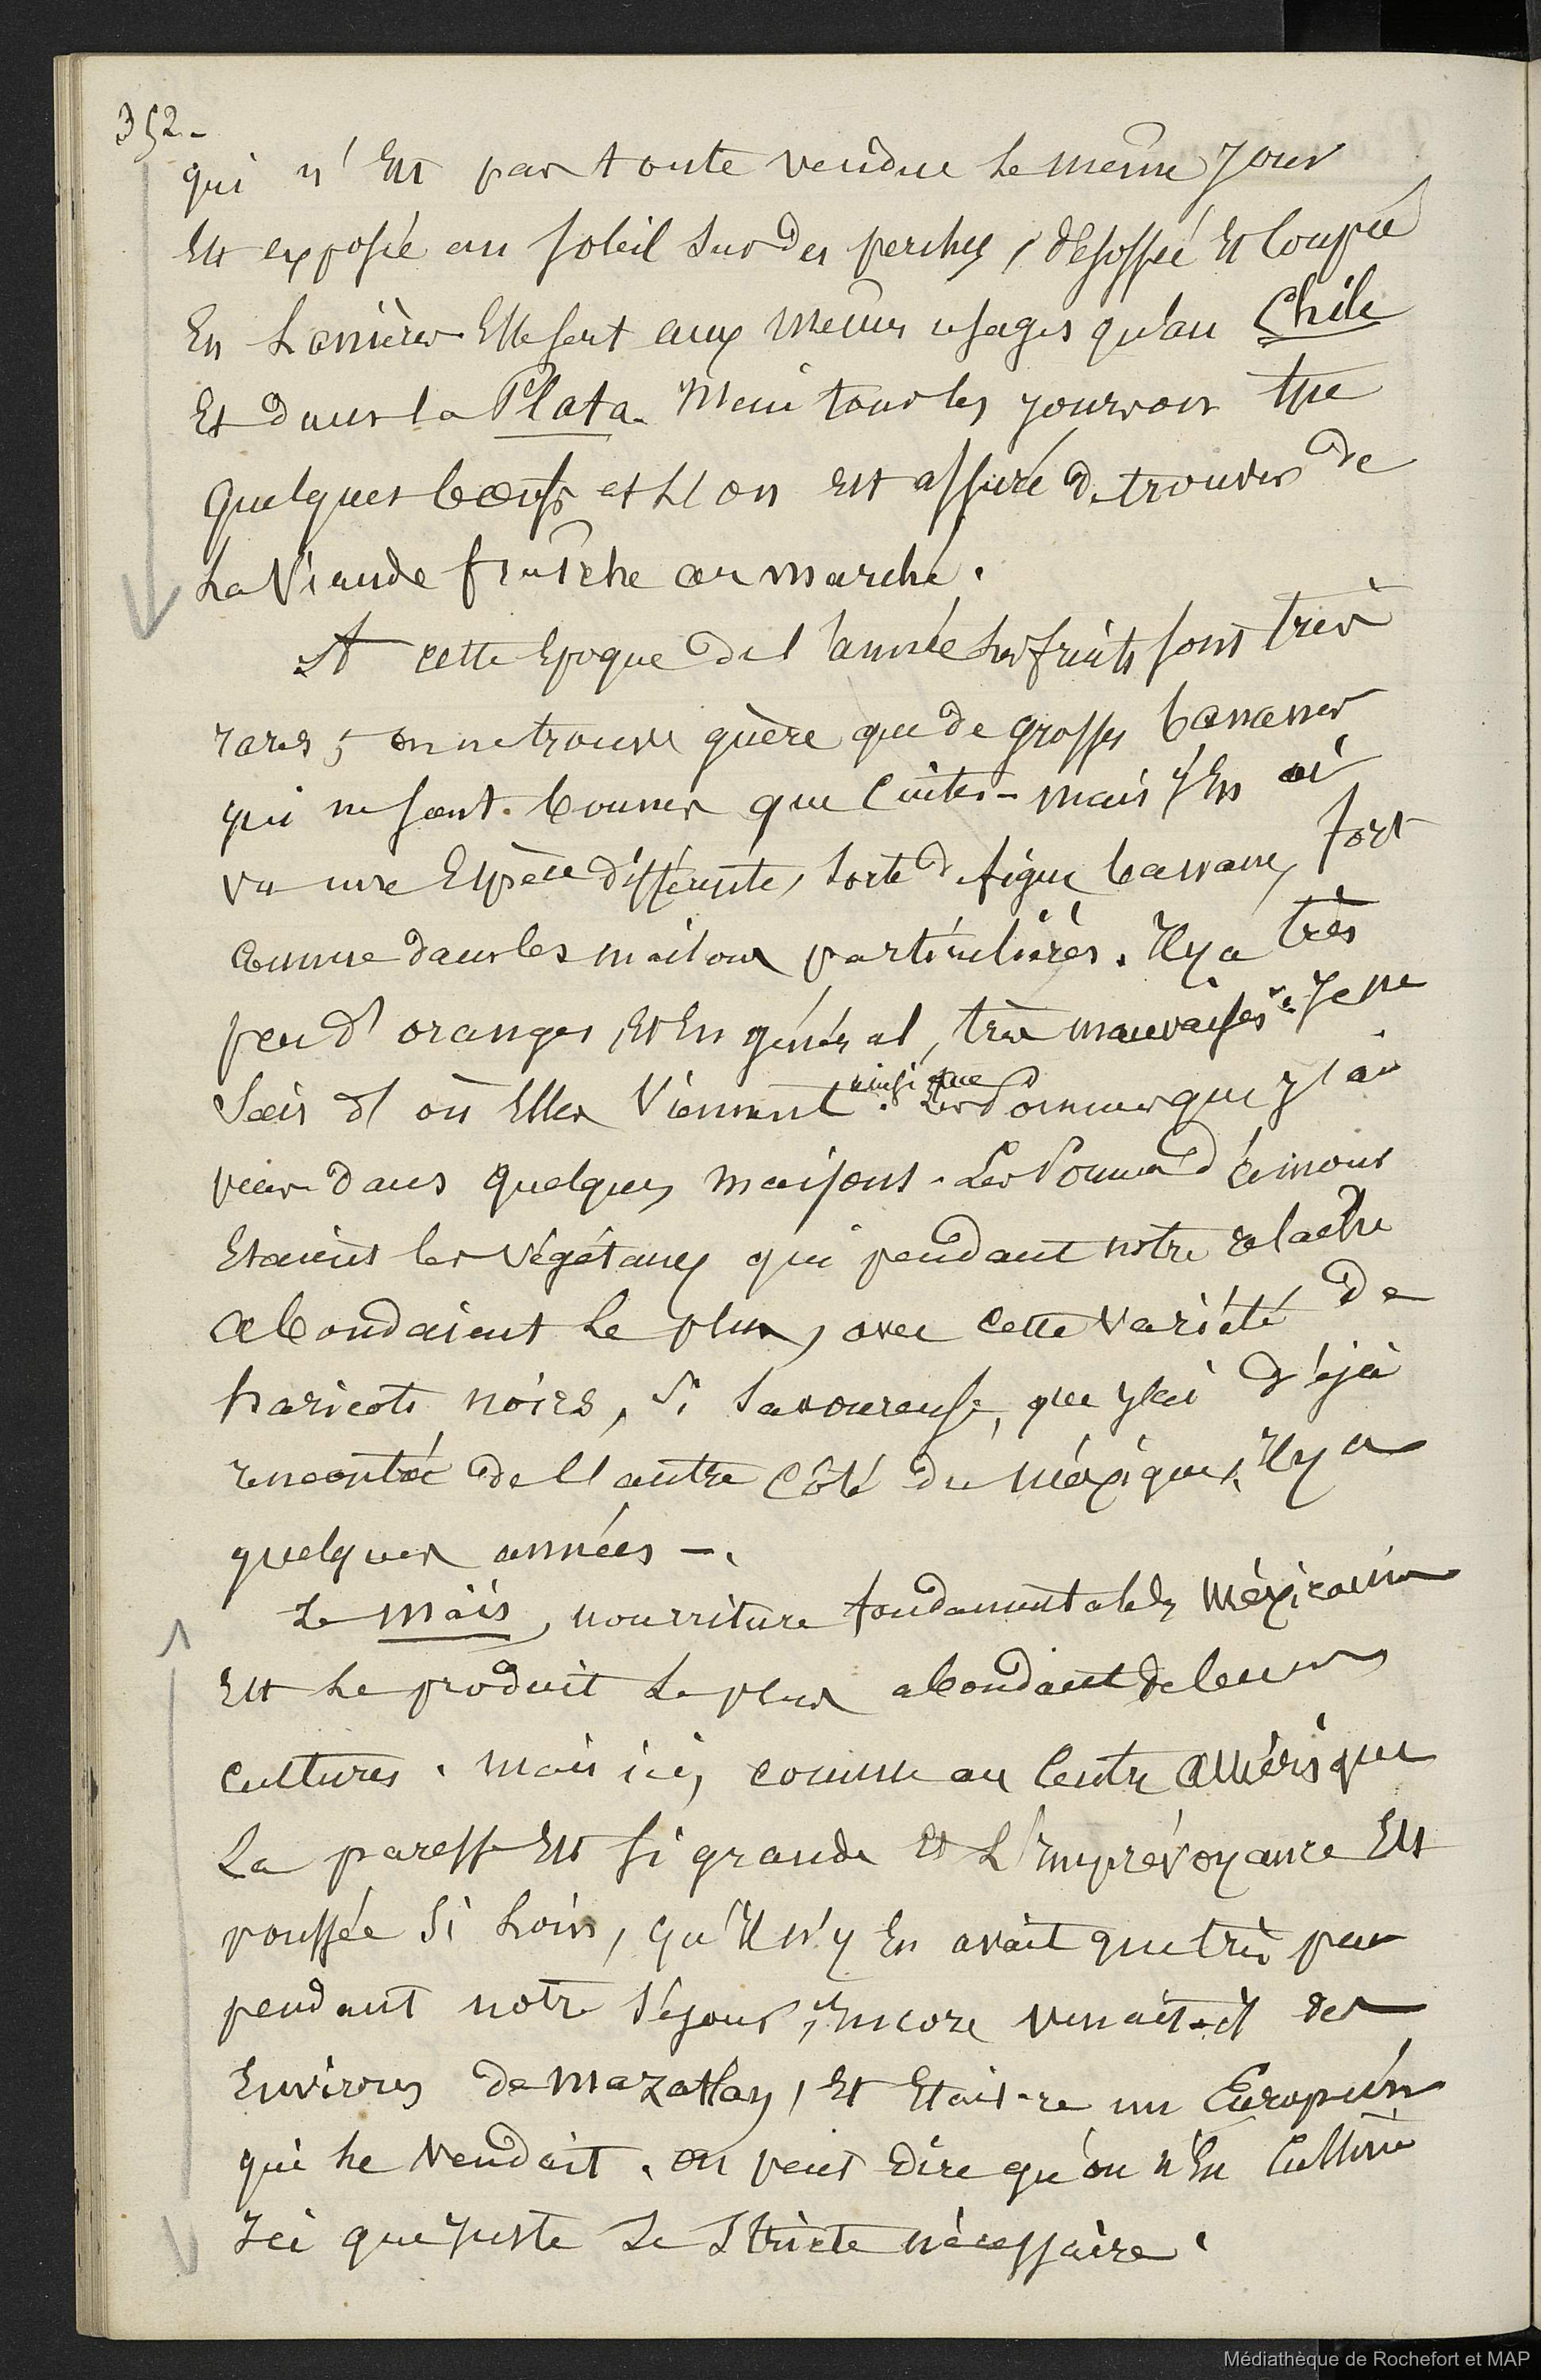 352-
qui n'est pas toute vendue le même jour
est exposée au soleil sur des perches, désossée et coupée
en lanières. Elle sert aux mêmes usages qu'au Chile
et dans la Plata. Mais tous les jours on tue
quelques bœufs et l'on est assuré de trouver de
la viande fraîche au marché.
A cette époque de l'année les fruits sont très
rares, on ne trouve guère que de grosses bananes
qui ne sont bonnes que cuites - mais j'en ai
vu une espèce différente, sorte de figue banane, fort
connue dans les maisons particulières. Il y a très
peu d'oranges, et en général, très mauvaises. Je ne
sais d'où elles viennent ainsi que les Pommes que j'ai
vues dans quelques maisons. Les Pommes d'
étaient les végétaux qui pendant notre relâche
abondaient le plus, avec cette variété de
haricots noirs, si savoureuse, que j'ai déjà
rencontré de l'autre côté du Méxique, il y a
quelques années -.
Le maïs, nourriture fondamentale des Méxicains
est le produit le plus abondant de leurs
cultures. Mais ici, comme au Centre Amérique
la paresse est si grande et l'imprévoyance est
poussée si loin, qu'il n'y en avait que très peu
pendant notre séjour, encore venait-il des
environs de Mazatlan, et était-ce un Européen
qui le vendait. On peut dire qu'on n'en cultive
ici que juste le stricte nécessaire.
Médiathèque de Rochefort et MAP